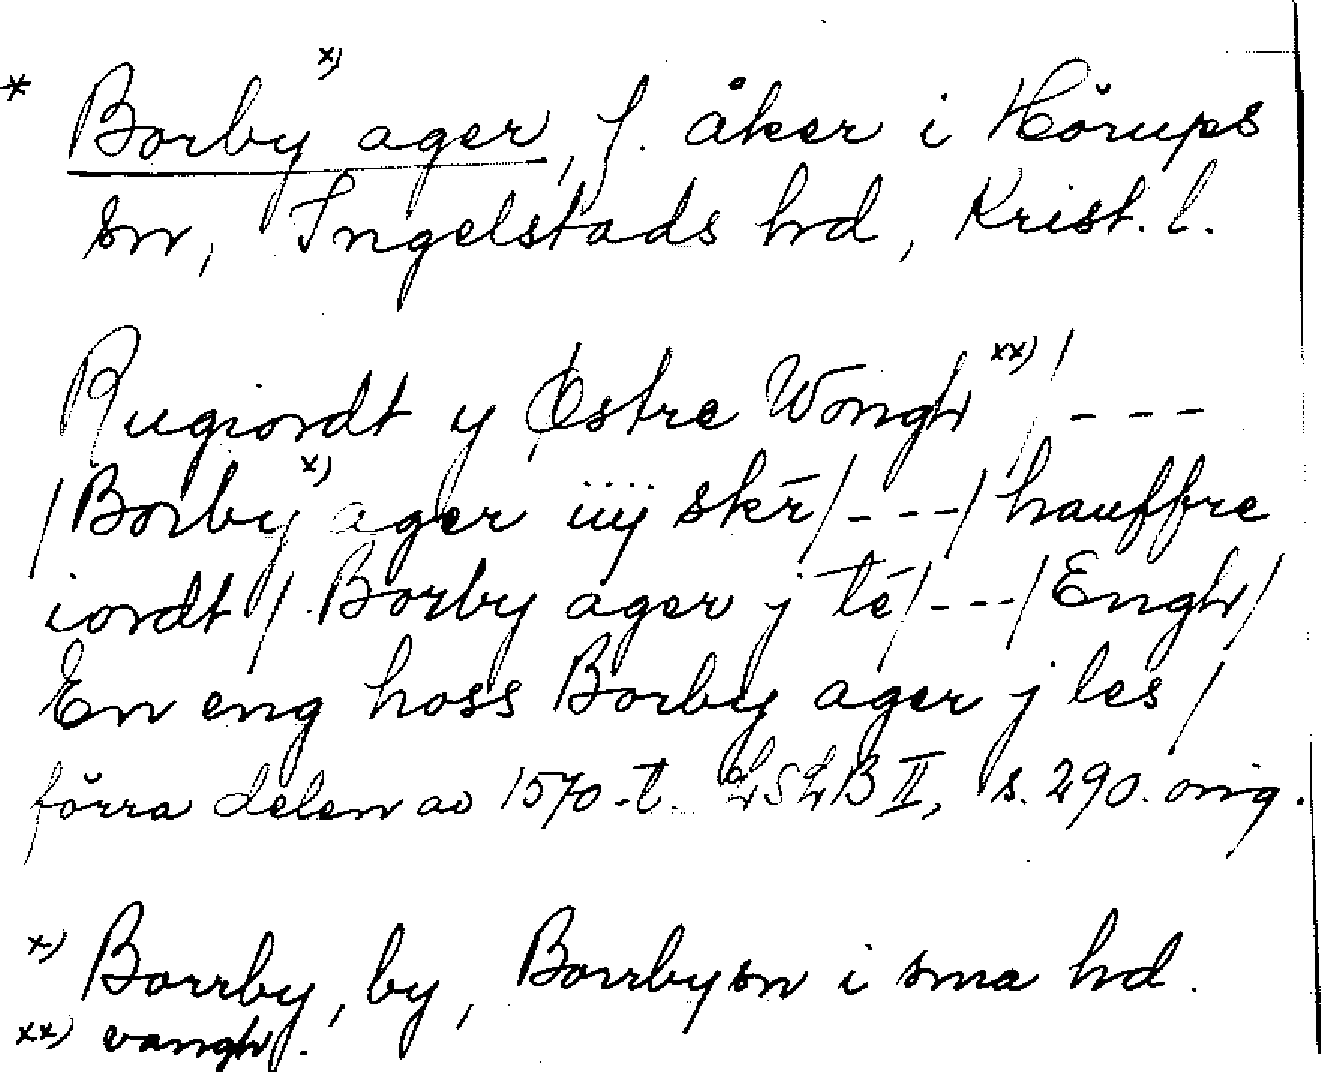 * Borby x) ager, f. åker i Hörups
sn, Ingelstads hd, Krist. l.
Rugiordt y Østre Wongh xx) / ---
/ Borby x) ager iiij skr̄ / --- / hauffre
iordt / Borby ager j té / --- / Engh /
En eng hoss Borby ager j les /
förra delen av 1570-t. LSLB II, s. 290. orig.
x) Borrby, by, Borrby sn i sma hd.
xx) vangh.